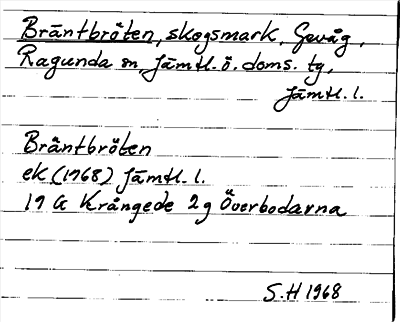 Bräntbröten, skogsmark, Gevåg,
Ragunda sn, Jämtl. ö. doms. tg,
Jämtl. l.
Bräntbröten
ek (1968) Jämtl. l.
19 G Krångede 2 g Överbodarna
S.H 1968